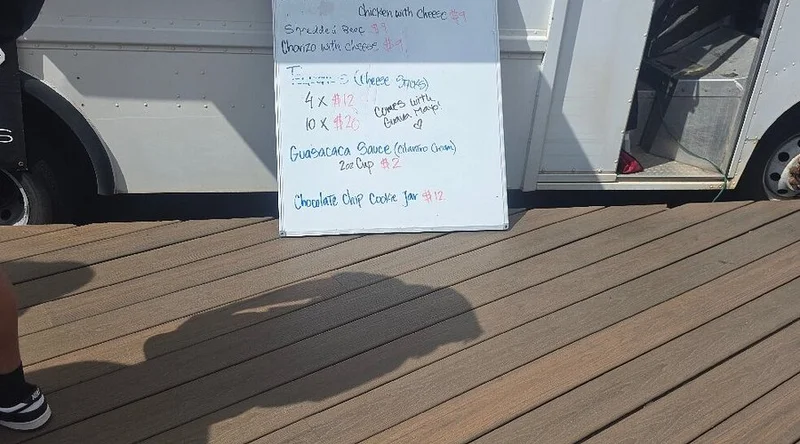 Chicken with cheese $9
Shredded Beef $9
Chorizo with cheese $9
(Cheese Sticks)
4 x $12
10 x $26
Comes with
Guava Mayo
Guasacaca Sauce (Cilantro Cream)
2oz Cup $2
Chocolate Chip Cookie Jar $12
S